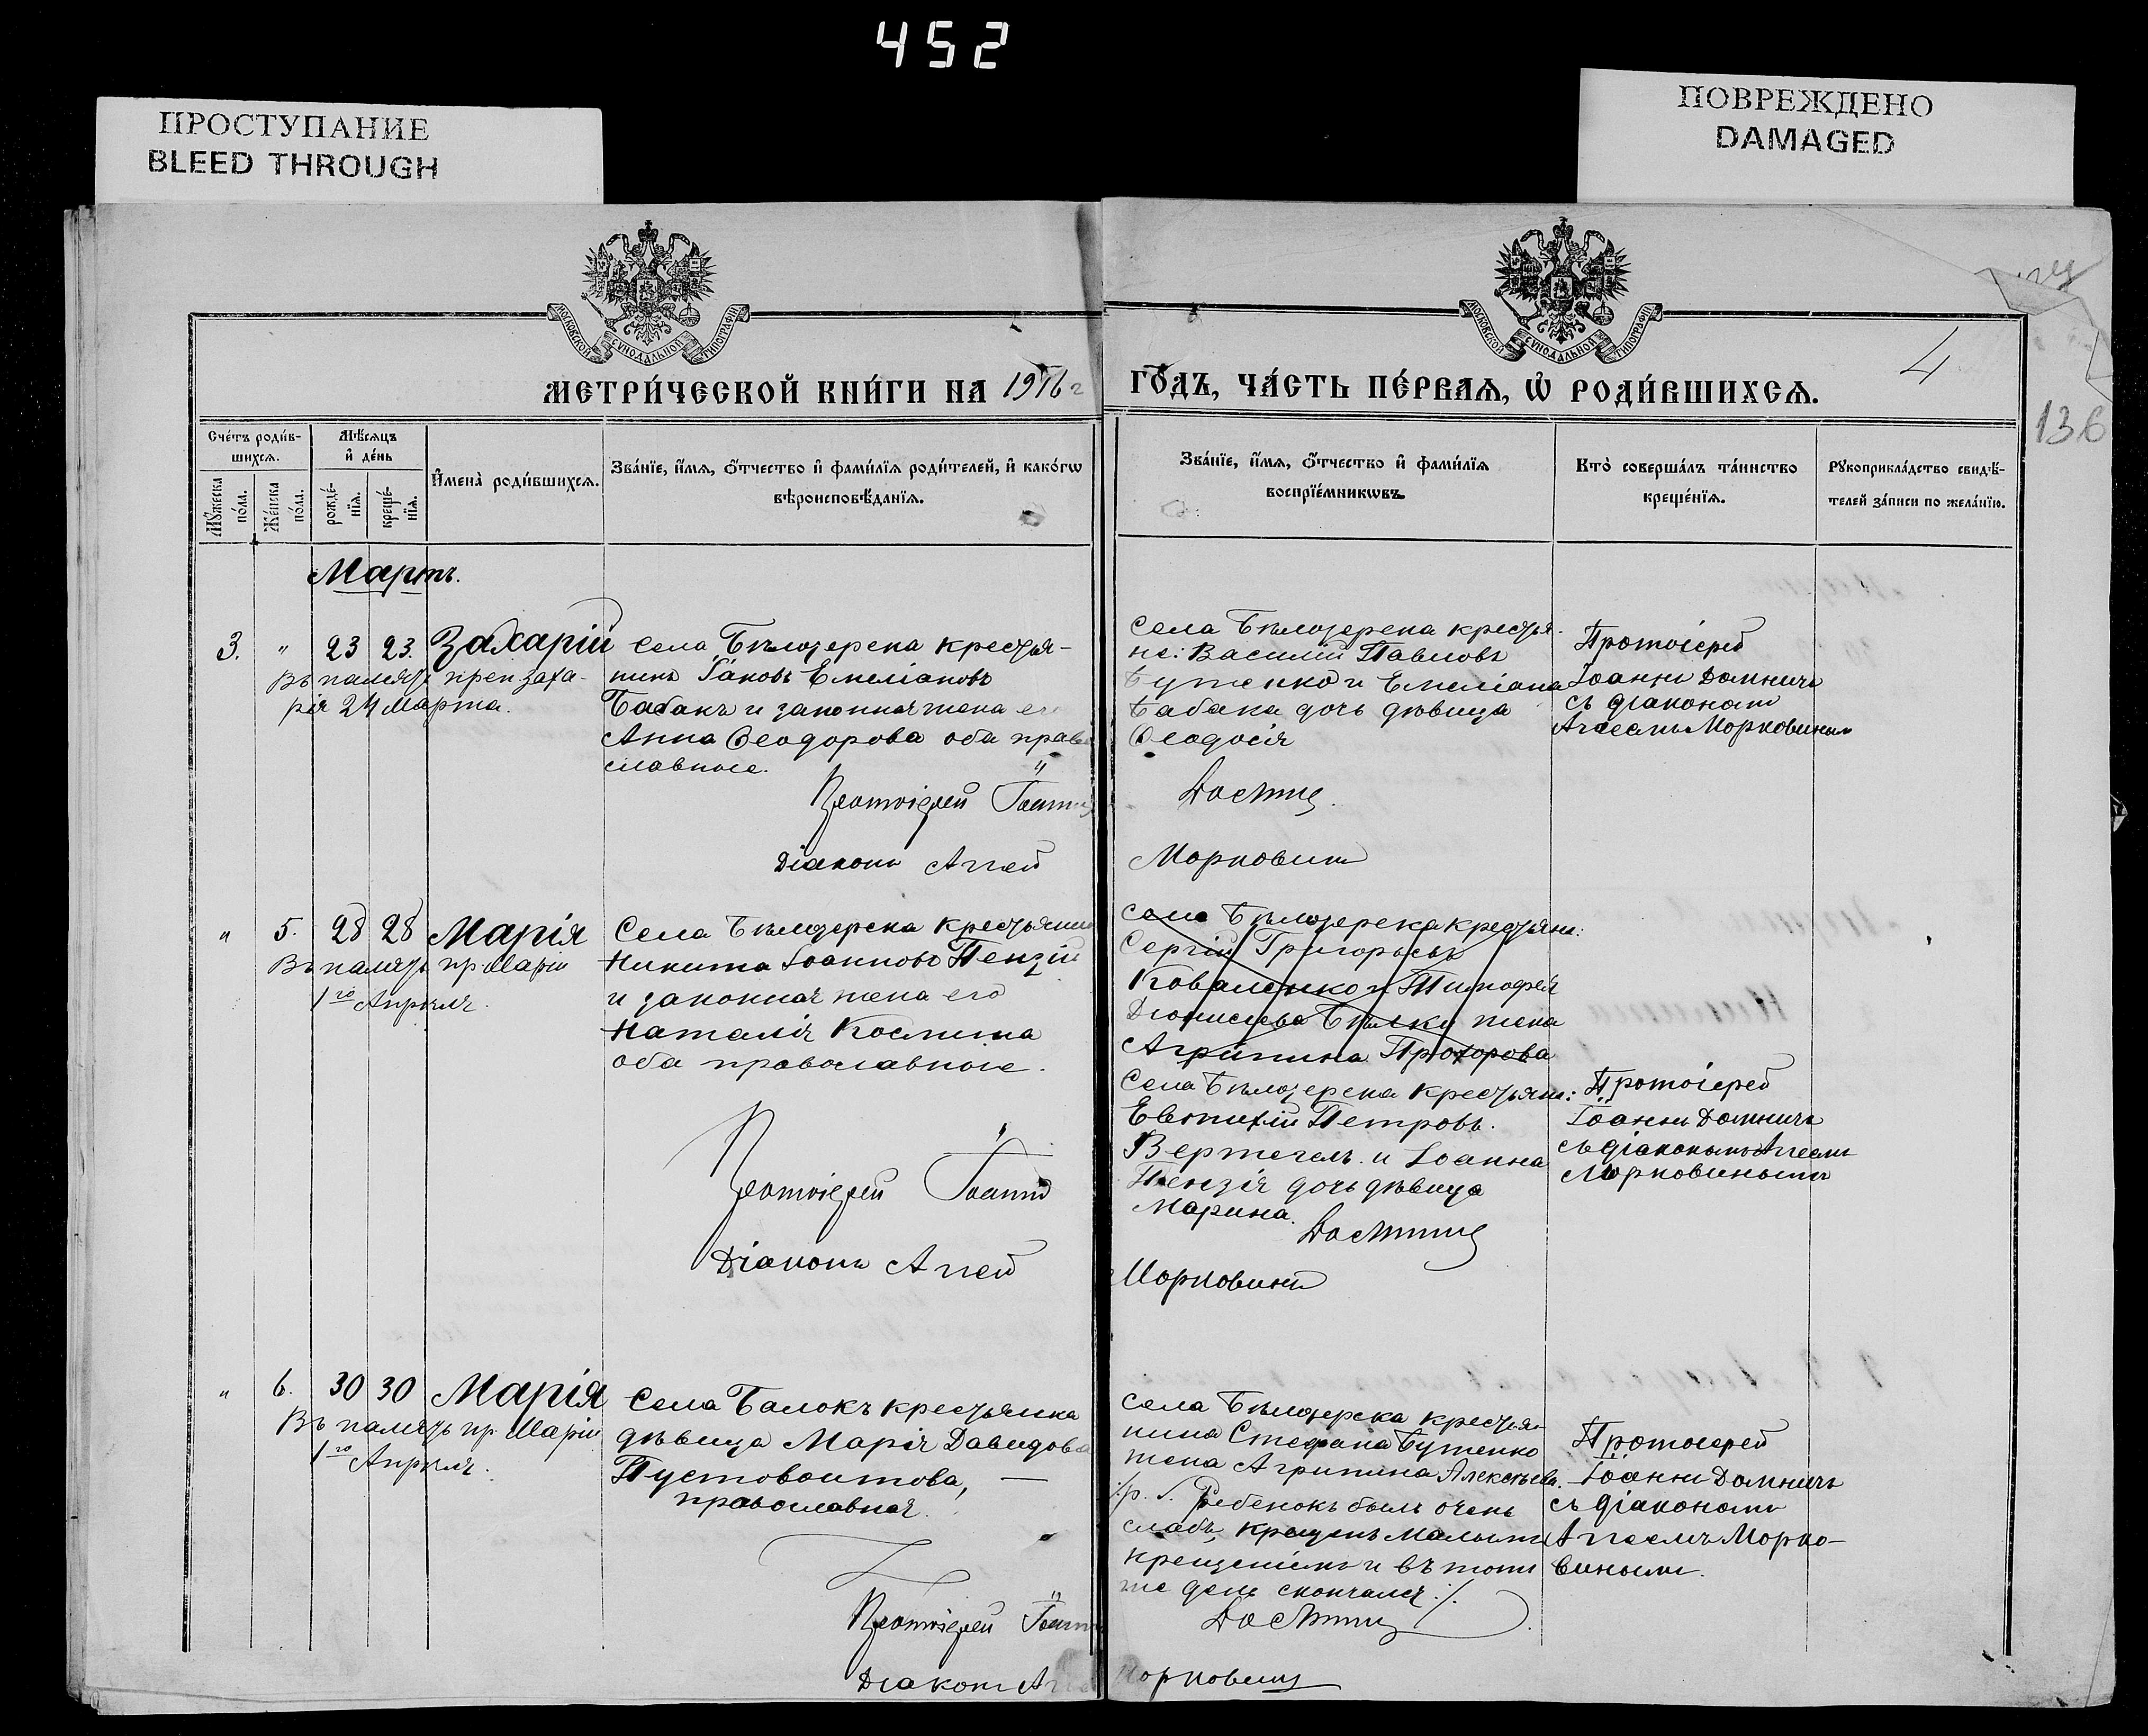 452
ПРОСТУПАНИЕ
BLEED THROUGH
ПОВРЕЖДЕНО
DAMAGED
МОСКОВСКОЙ СѴНОДАЛЬНОЙ ТИПОГРАФІИ
МОСКОВСКОЙ СѴНОДАЛЬНОЙ ТИПОГРАФІИ
4
МЕТРИ́ЧЕСКОЙ КНИ́ГИ НА 1916 г
ГО́ДЪ, ЧА́СТЬ ПЕ́РВАѦ, Ѡ҆ РОДИ́ВШИХСѦ.
136
Сче́тъ роди́в-
шихсѧ.
Мѣ́сѧцъ
и҆ де́нь
Мꙋ́жеска
по́ла.
Же́нска
по́ла.
рожде́-
нїѧ.
креще́-
нїѧ.
И҆мена̀ роди́вшихсѧ.
Зва́нїе, и҆́мѧ, ѻ҆́тчество и҆ фами́лїѧ роди́телей, и҆ како́гѡ
вѣроисповѣ́данїѧ.
Зва́нїе, и҆́мѧ, ѻ҆́тчество и҆ фами́лїѧ
воспрїе́мникѡвъ.
Кто̀ соверша́лъ та́инство
креще́нїѧ.
Рꙋкоприкла́дство свидѣ́-
телей за́писи по жела́нїю.
Мартъ.
3. " 23 23. Захарій
Въ память преп Заха-
рія 24 Марта.
Села Бѣлозерска крестья-
нинъ Іаковъ Емеліановъ
Бабакъ и законная жена его
Анна Ѳеодорова оба право
славные.
Протоіерей Іоаннъ
Діаконъ Аггей
Села Бѣлозерска крестья-
не: Василій Павловъ
Бутенко и Емеліана
Бабака дочь дѣвица
Ѳеодосія
Домничъ
Морковинъ
Протоіерей
Іоаннъ Домничъ
съ діакономъ
Аггеемъ Морковинымъ
" 5. 28 28 Марія
Въ память пр Маріи
1го Апрѣля.
Села Бѣлозерска крестьянинъ
Никита Іоанновъ Пензій
и законная жена его
Наталія Космина
оба православные.
Протоіерей Іоаннъ
Діаконъ Аггей
Села Бѣлозерска крестьяне:
Сергій Григорьевъ
Коваленко и Тимофея
Діонисіева Бѣлки жена
Агрипина Прохорова
Села Бѣлозерска крестьяне:
Евтихій Петровъ
Вертегелъ и Іоанна
Пензія дочь дѣвица
Марина.
Домничъ
Морковинъ
Протоіерей
Іоаннъ Домничъ
съ діакономъ Аггеемъ
Морковинымъ
" 6. 30 30 Марія
Въ память пр. Маріи
1го Апрѣля.
Села Балокъ крестьянка
дѣвица Марія Давидова
Пустовоитова, —
православная.
Протоіерей Іоаннъ
Діаконъ Аггей
Села Бѣлозерска крестья-
нина Стефана Бутенко
жена Агрипина Алексѣева.
Ребенокъ былъ очень
слабъ, крещенъ малымъ
крещеніемъ и въ тотъ
же день скончался ./.
Домничъ
Морковинъ
Протоіерей
Іоаннъ Домничъ
съ діакономъ
Аггеемъ Морко-
винымъ.